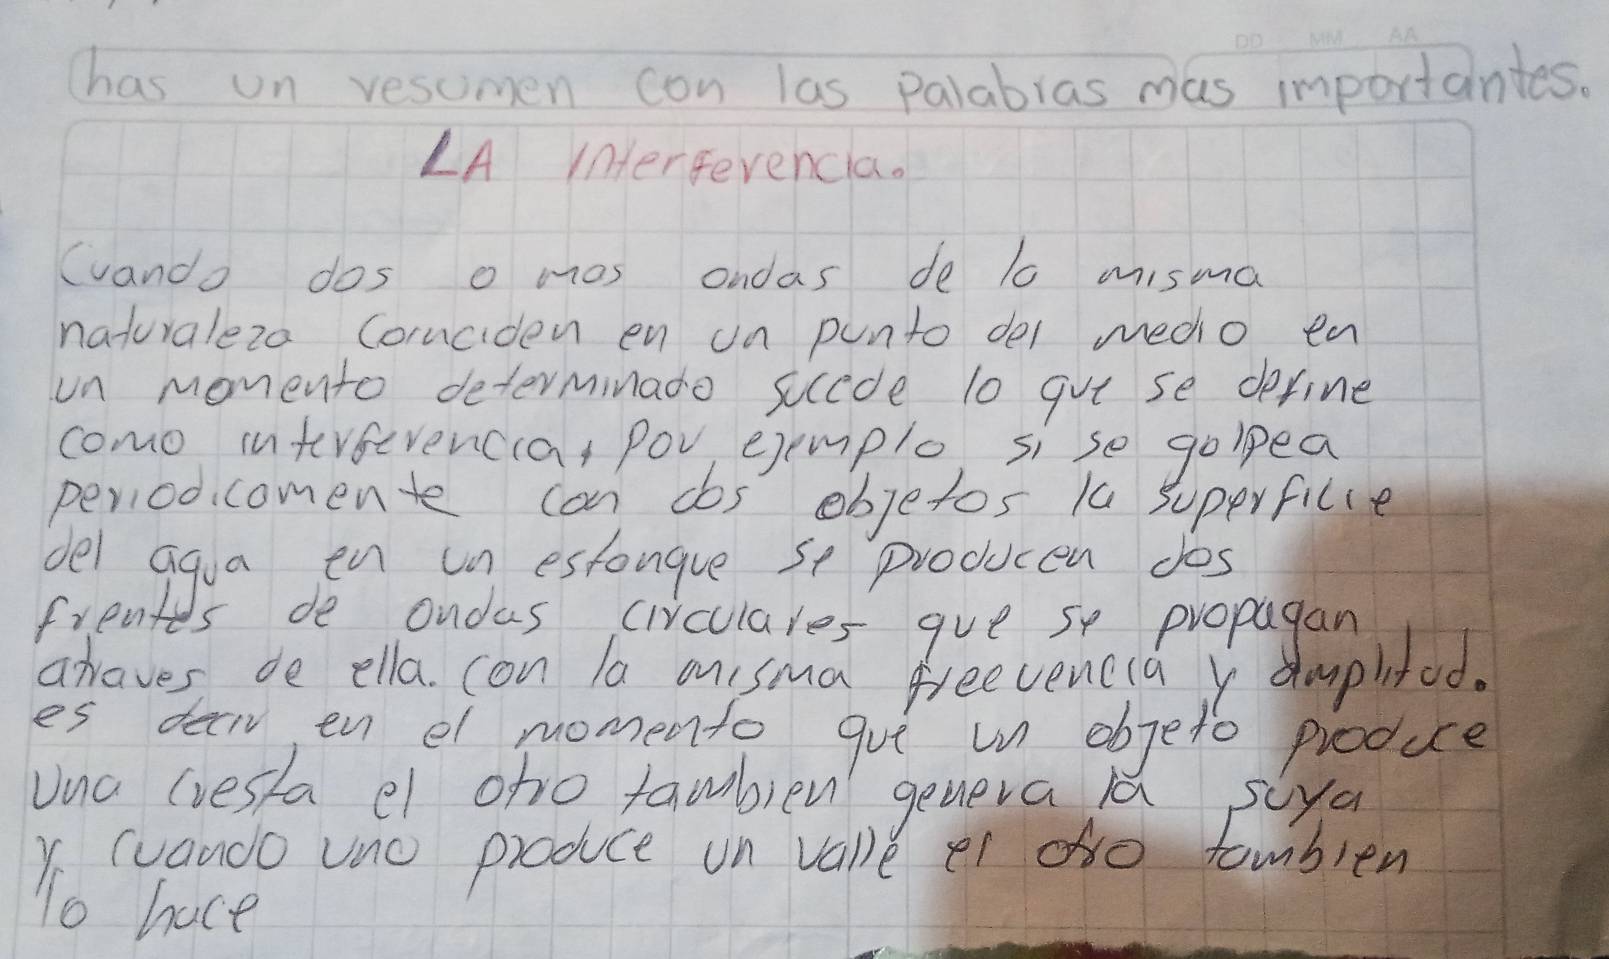 DD MM AA
has un resumen con las Palabras mas importantes.
LA Interferencia.
Cuando dos o mas ondas de la misma
naturaleza Coinciden en un punto del medio en
un momento determinado sucede lo que se define
como interferencia, Por ejemplo si se golpea
periodicamente con dos objetos la superficie
del agua en un estanque se producen dos
frentes de ondas circulares que se propagan
atraves de ella. con la misma freevencia y amplitud.
es decir en el momento que un objeto produce
una cresta el otro tambien genera la suya
y cuando uno produce un valle el otro tambien
lo hace